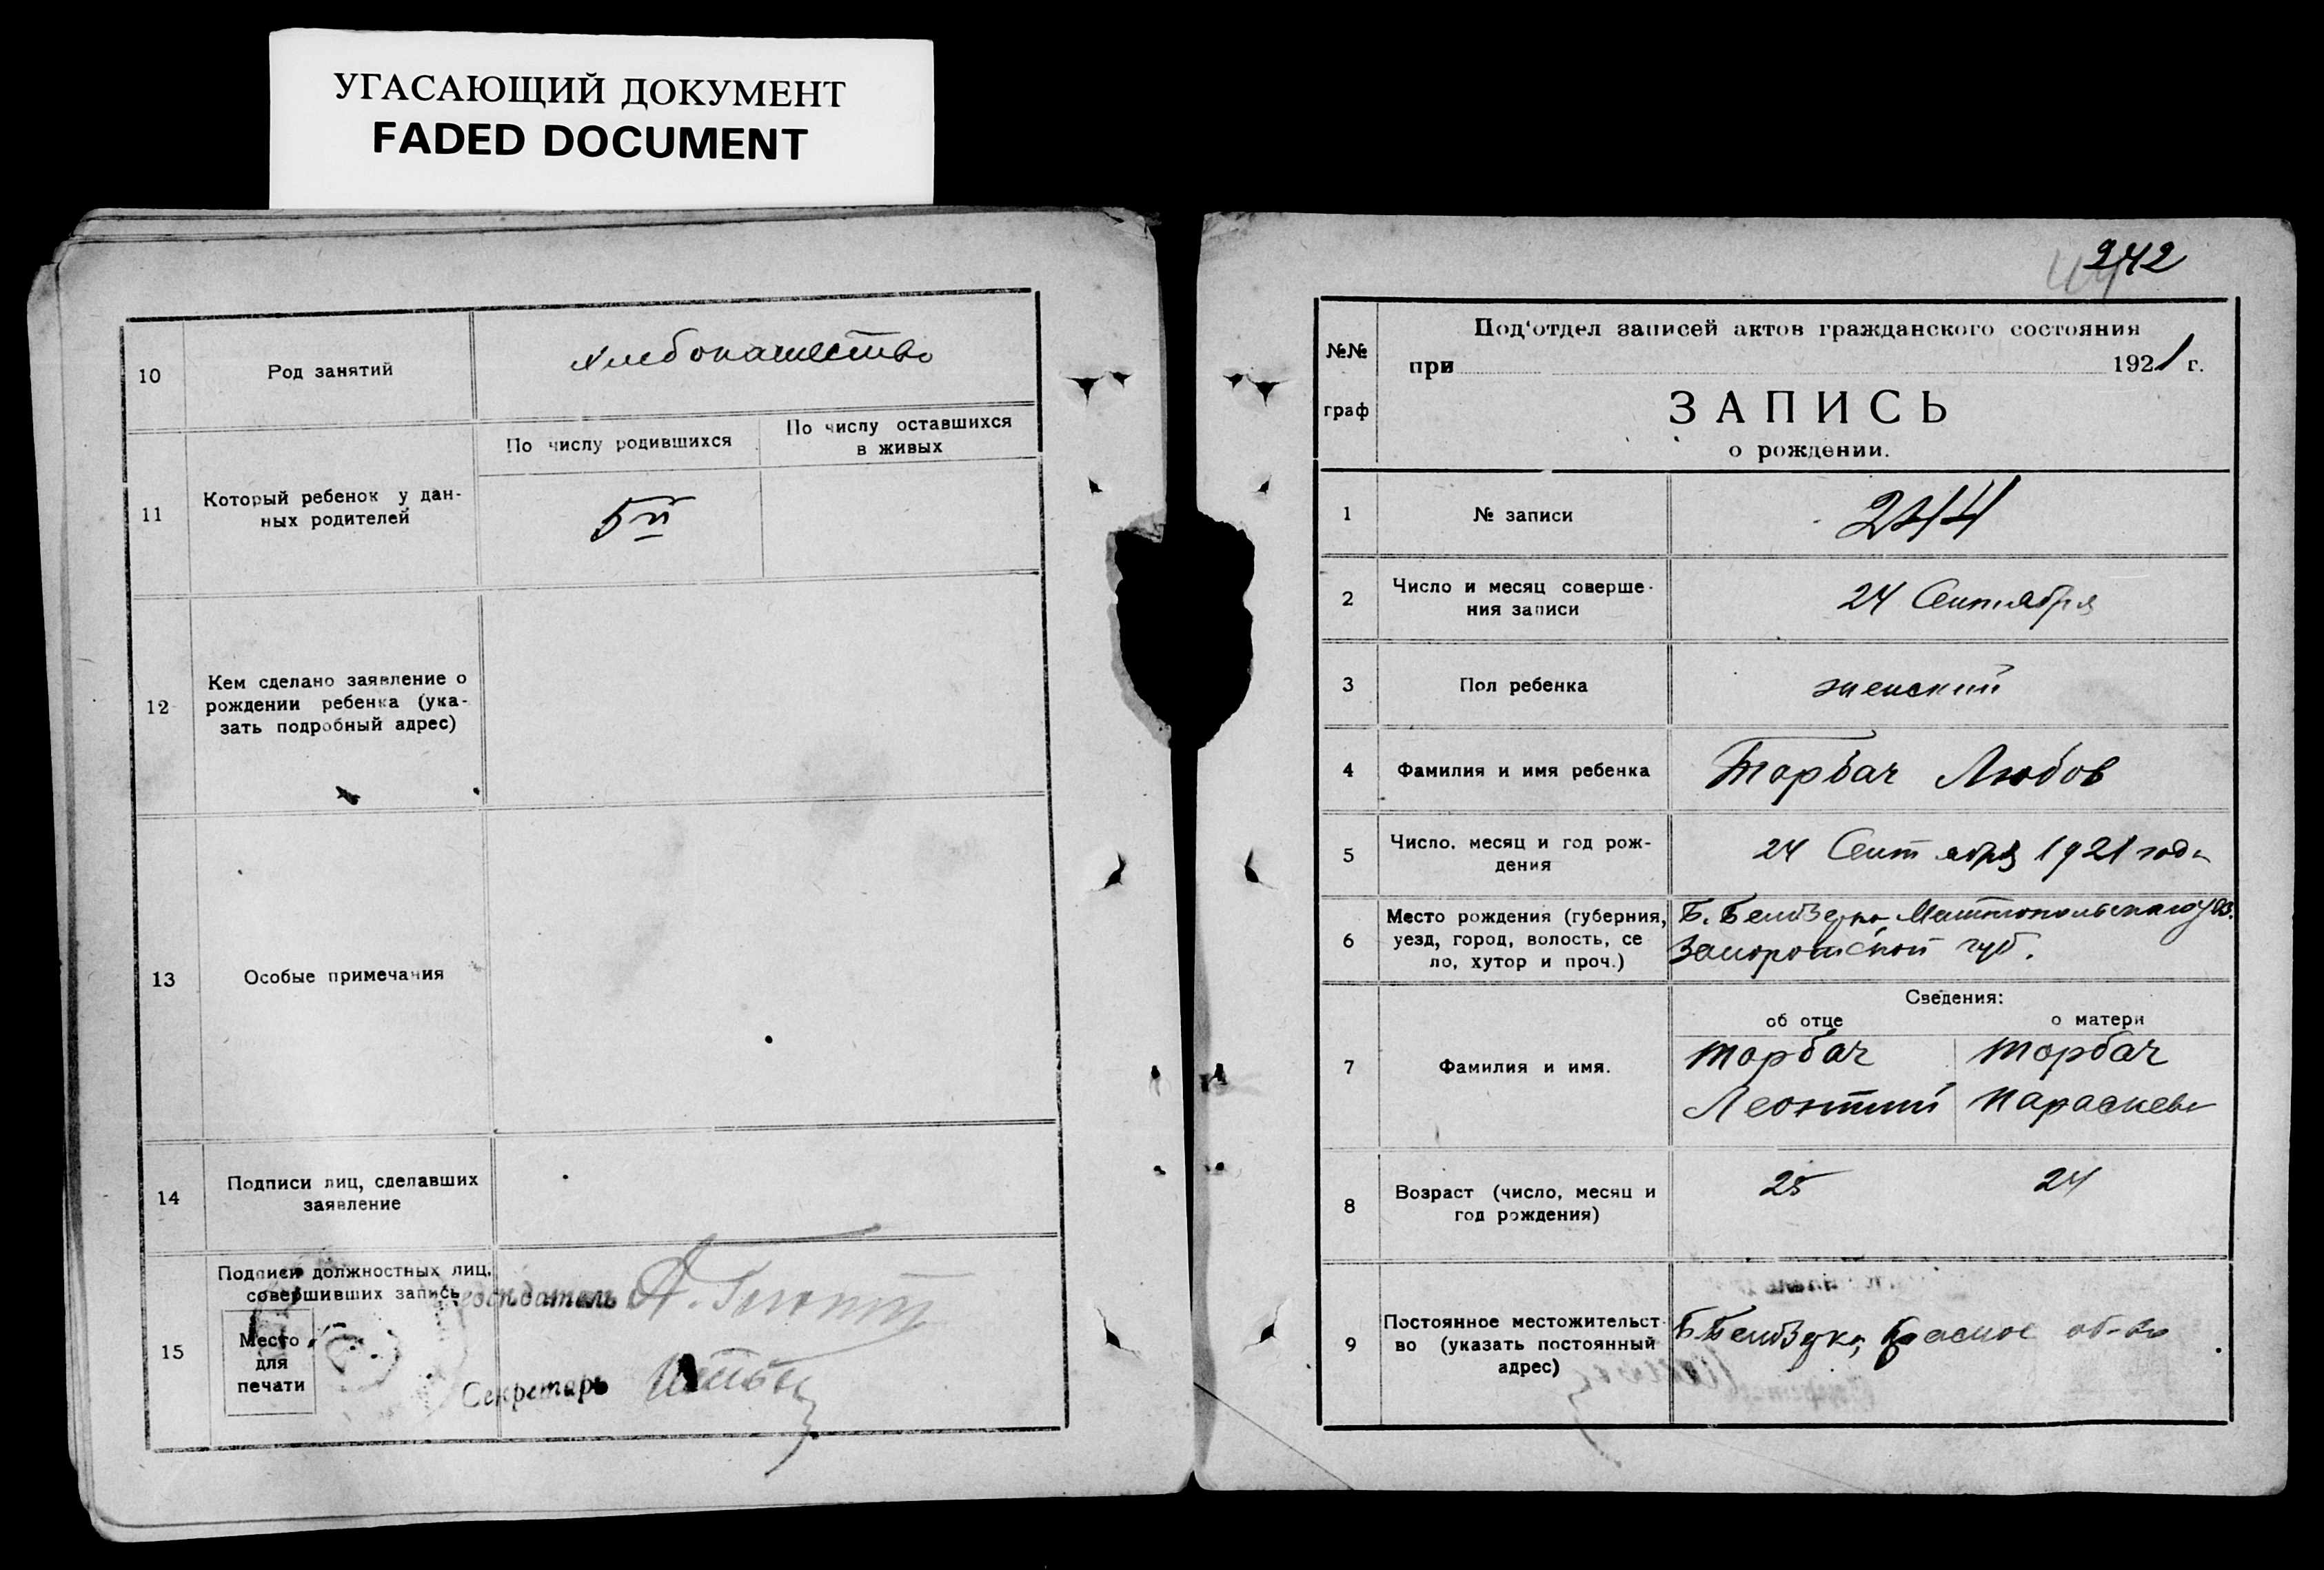 УГАСАЮЩИЙ ДОКУМЕНТ
FADED DOCUMENT
10
Род занятий
хлебопашество
11
Который ребенок у дан-
ных родителей
По числу родившихся
По числу оставшихся
в живых
5й
12
Кем сделано заявление о
рождении ребенка (ука-
зать подробный адрес)
13
Особые примечания
14
Подписи лиц, сделавших
заявление
15
Подписи должностных лиц,
совершивших запись
Место
для
печати
Председатель А.
Секретарь
242
44
№№
граф
Под'отдел записей актов гражданского состояния
при 1921 г.
ЗАПИСЬ
о рождении.
1
№ записи
244
2
Число и месяц соверше-
ния записи
24 Сентября
3
Пол ребенка
женский
4
Фамилия и имя ребенка
Торбач Любов
5
Число, месяц и год рож-
дения
24 Сентября 1921 года
6
Место рождения (губерния,
уезд, город, волость, се
ло, хутор и проч.)
Б. Белозерка Мелитопольского уез.
Запорожской губ.
7
Фамилия и имя.
Сведения:
об отце
о матери
Торбач
Торбач
Леонтий
Параскева
8
Возраст (число, месяц и
год рождения)
25
24
9
Постоянное местожительст
во (указать постоянный
адрес)
Б. Белозерка, об-во